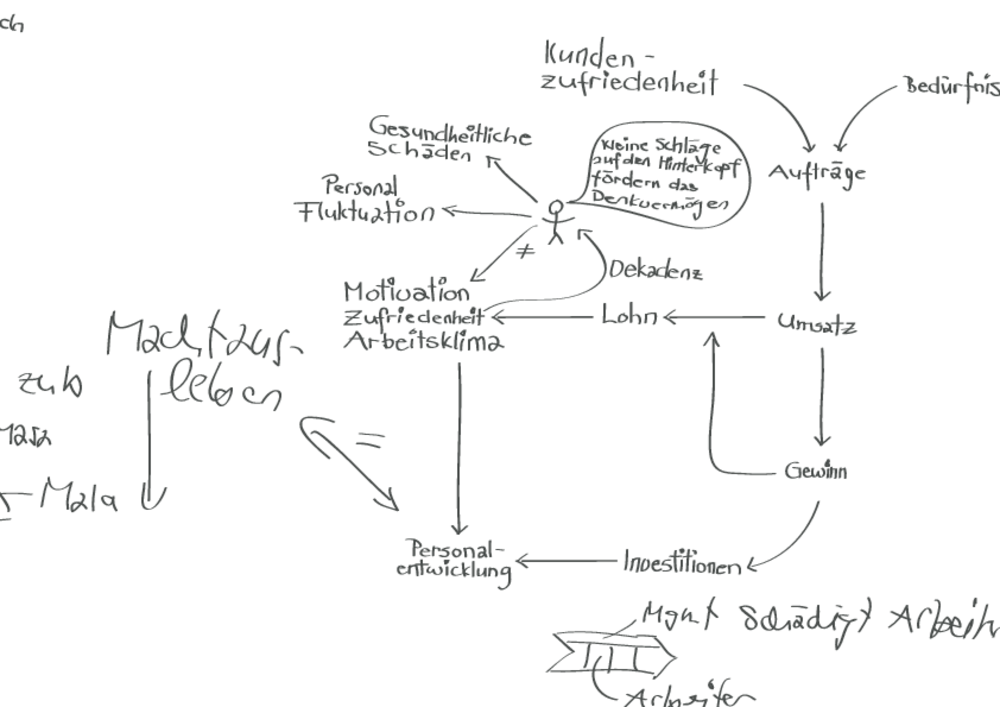 ch
Kunden-
zufriedenheit
Bedürfnis
Gesundheitliche
Schäden
kleine Schläge
auf den Hinterkopf
fördern das
Denkvermögen
Aufträge
Personal
Fluktuation
≠
Dekadenz
Motivation
Zufriedenheit
Arbeitsklima
Lohn
Umsatz
leben
=
Mala
Gewinn
Personal-
entwicklung
Investitionen
Mgnt Schädigt Arbeit
Arbeiter